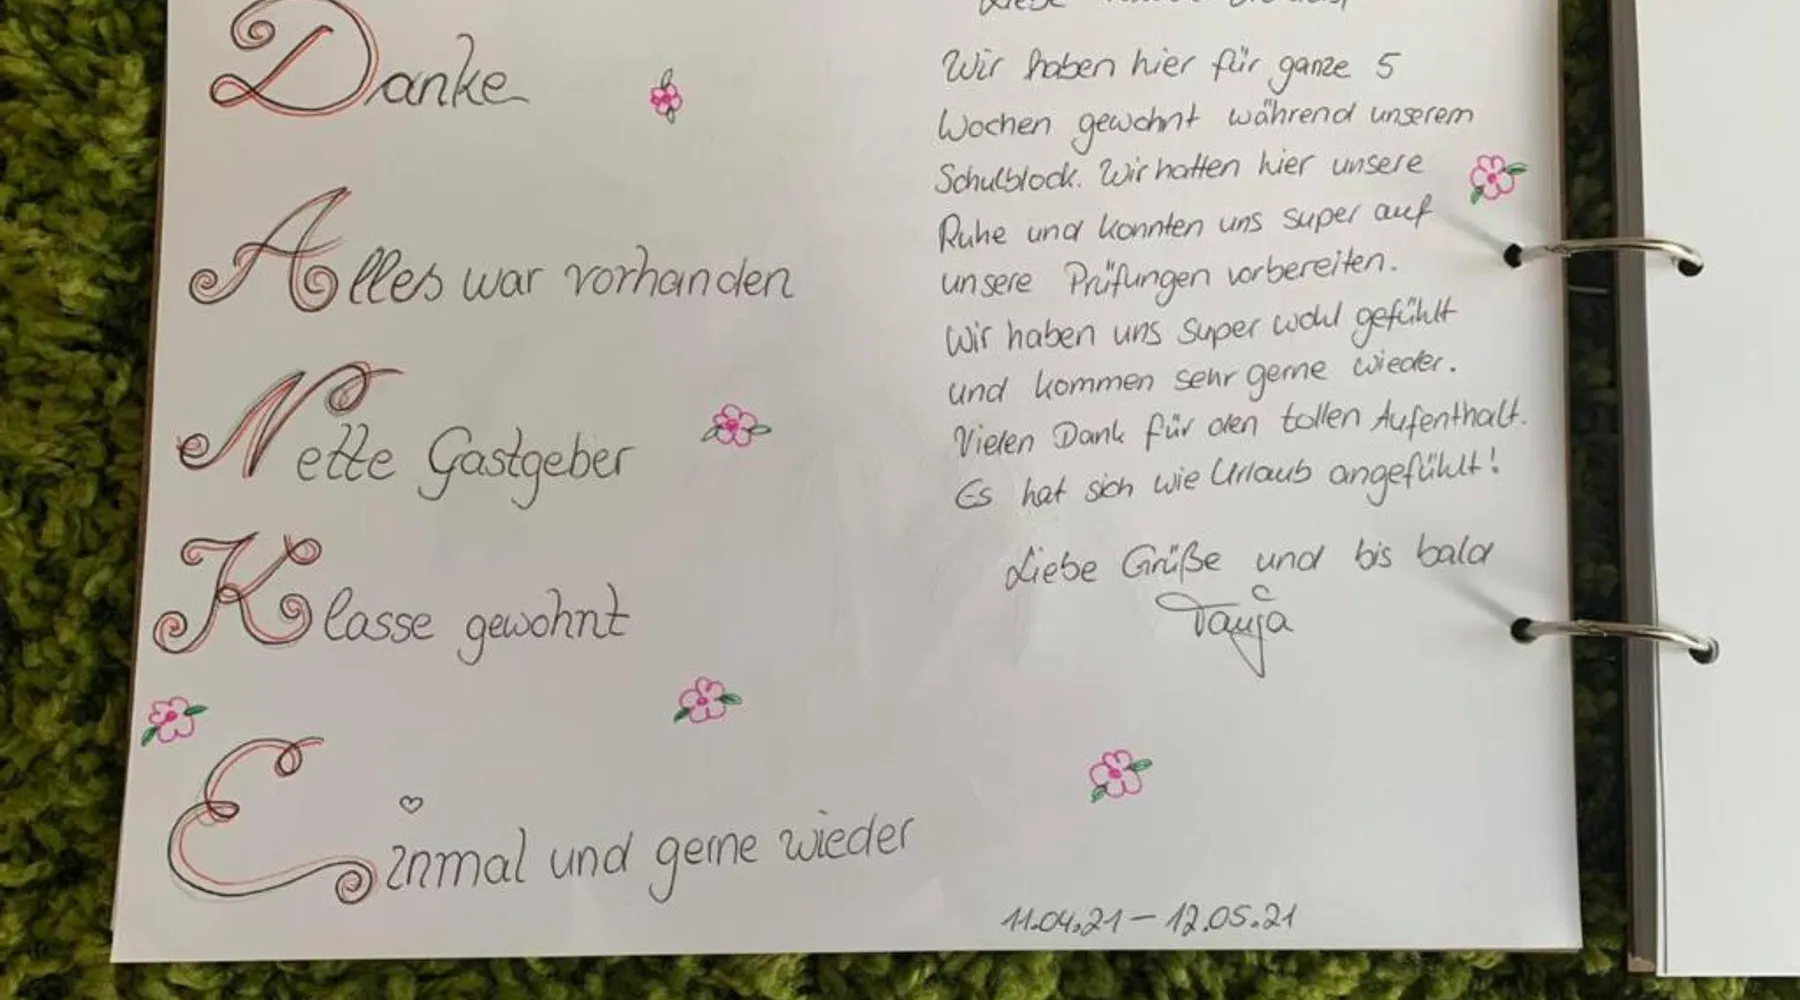 Danke
Alles war vorhanden
Nette Gastgeber
Klasse gewohnt
Einmal und gerne wieder
Liebe
Wir haben hier für ganze 5
Wochen gewohnt während unserem
Schulblock. Wir hatten hier unsere
Ruhe und konnten uns super auf
unsere Prüfungen vorbereiten.
Wir haben uns super wohl gefühlt
und kommen sehr gerne wieder.
Vielen Dank für den tollen Aufenthalt.
Es hat sich wie Urlaub angefühlt!
Liebe Grüße und bis bald
Tanja
11.04.21 - 12.05.21